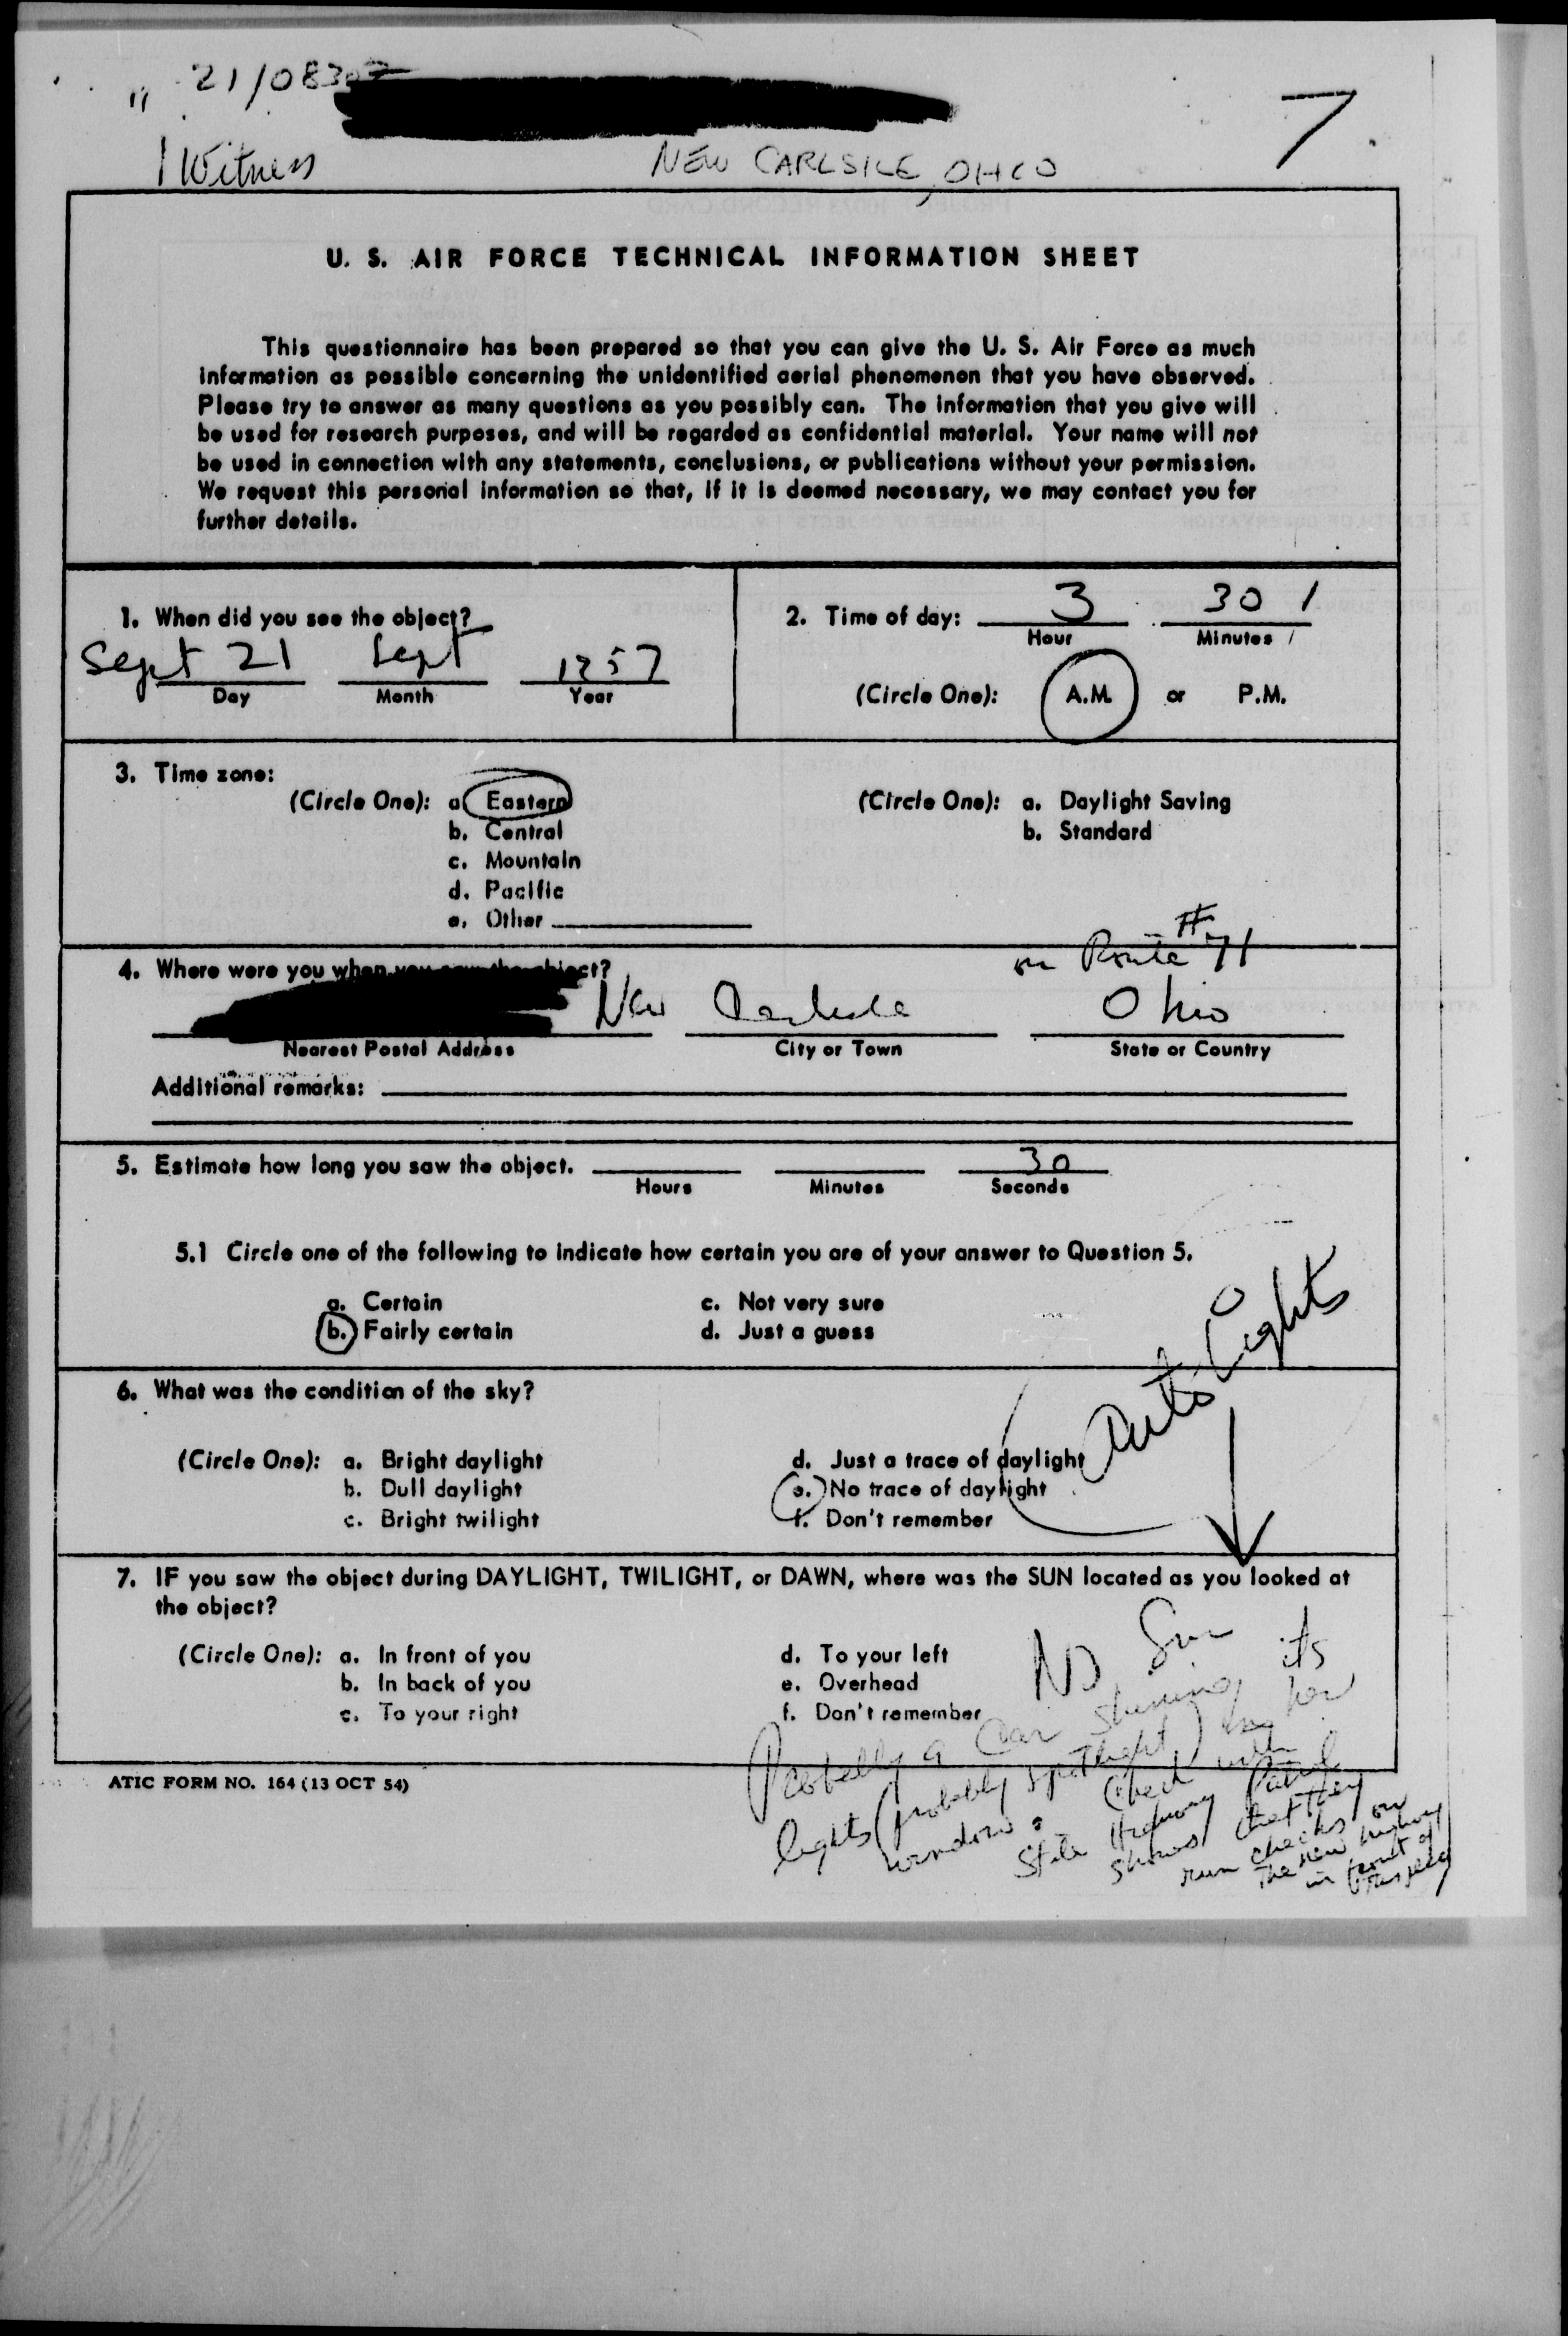 21/0830Z
1 Witness
NEW CARLSILE, OHIO
7.
U. S. AIR FORCE TECHNICAL INFORMATION SHEET
This questionnaire has been prepared so that you can give the U. S. Air Force as much
information as possible concerning the unidentified aerial phenomenon that you have observed.
Please try to answer as many questions as you possibly can. The information that you give will
be used for research purposes, and will be regarded as confidential material. Your name will not
be used in connection with any statements, conclusions, or publications without your permission.
We request this personal information so that, if it is deemed necessary, we may contact you for
further details.
1. When did you see the object?
Sept 21 Sept 1957
Day Month Year
2. Time of day: 3 30
Hour Minutes
(Circle One): A.M. or P.M.
3. Time zone:
(Circle One): a. Eastern
b. Central
c. Mountain
d. Pacific
e. Other
(Circle One): a. Daylight Saving
b. Standard
on Route #71
4. Where were you when you saw the object?
New Carlisle Ohio
Nearest Postal Address City or Town State or Country
Additional remarks:
5. Estimate how long you saw the object. 30
Hours Minutes Seconds
5.1 Circle one of the following to indicate how certain you are of your answer to Question 5.
a. Certain
b. Fairly certain
c. Not very sure
d. Just a guess
Auto Lights
6. What was the condition of the sky?
(Circle One): a. Bright daylight
b. Dull daylight
c. Bright twilight
d. Just a trace of daylight
e. No trace of daylight
f. Don't remember
7. IF you saw the object during DAYLIGHT, TWILIGHT, or DAWN, where was the SUN located as you looked at
the object?
(Circle One): a. In front of you
b. In back of you
c. To your right
d. To your left
e. Overhead
f. Don't remember
No Sun
Probably a Car shining its
lights (probably spotlight) her
window. Check with
State Highway Patrol
shows that they
run checks on
the new highway
in front of
ATIC FORM NO. 164 (13 OCT 54)